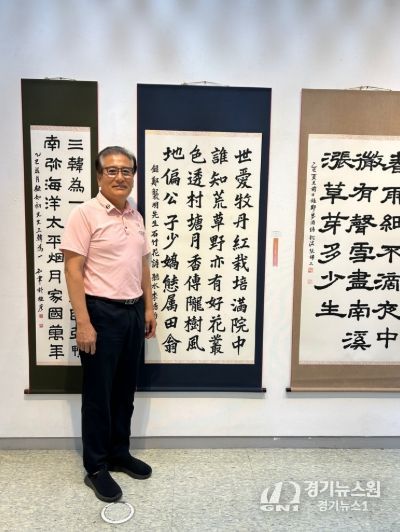 春雨細不滴夜中
微有聲雪盡南溪
漲草芽多少生
世愛牡丹紅栽培滿院中
誰知荒草野亦有好花叢
色透村塘月香傳隴樹風
地偏公子少嬌態屬田翁
錄鄭襲明先生石竹花詩
三韓為一
南弥海洋太平烟月家國萬年
GN1 경기뉴스원
경기뉴스1